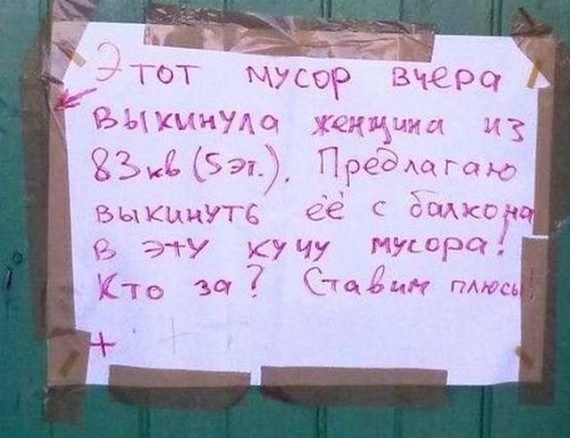 Этот мусор вчера
выкинула женщина из
83 кв (5 эт.). Предлагаю
выкинуть её с балкона
в эту кучу мусора!
Кто за? Ставим плюсы!
+ + +